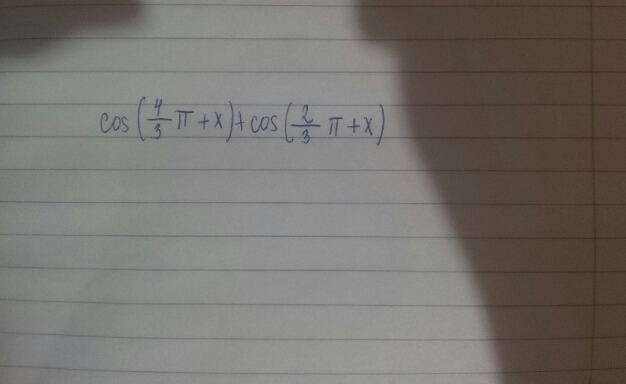 cos(4/3 π + x) + cos(2/3 π + x)